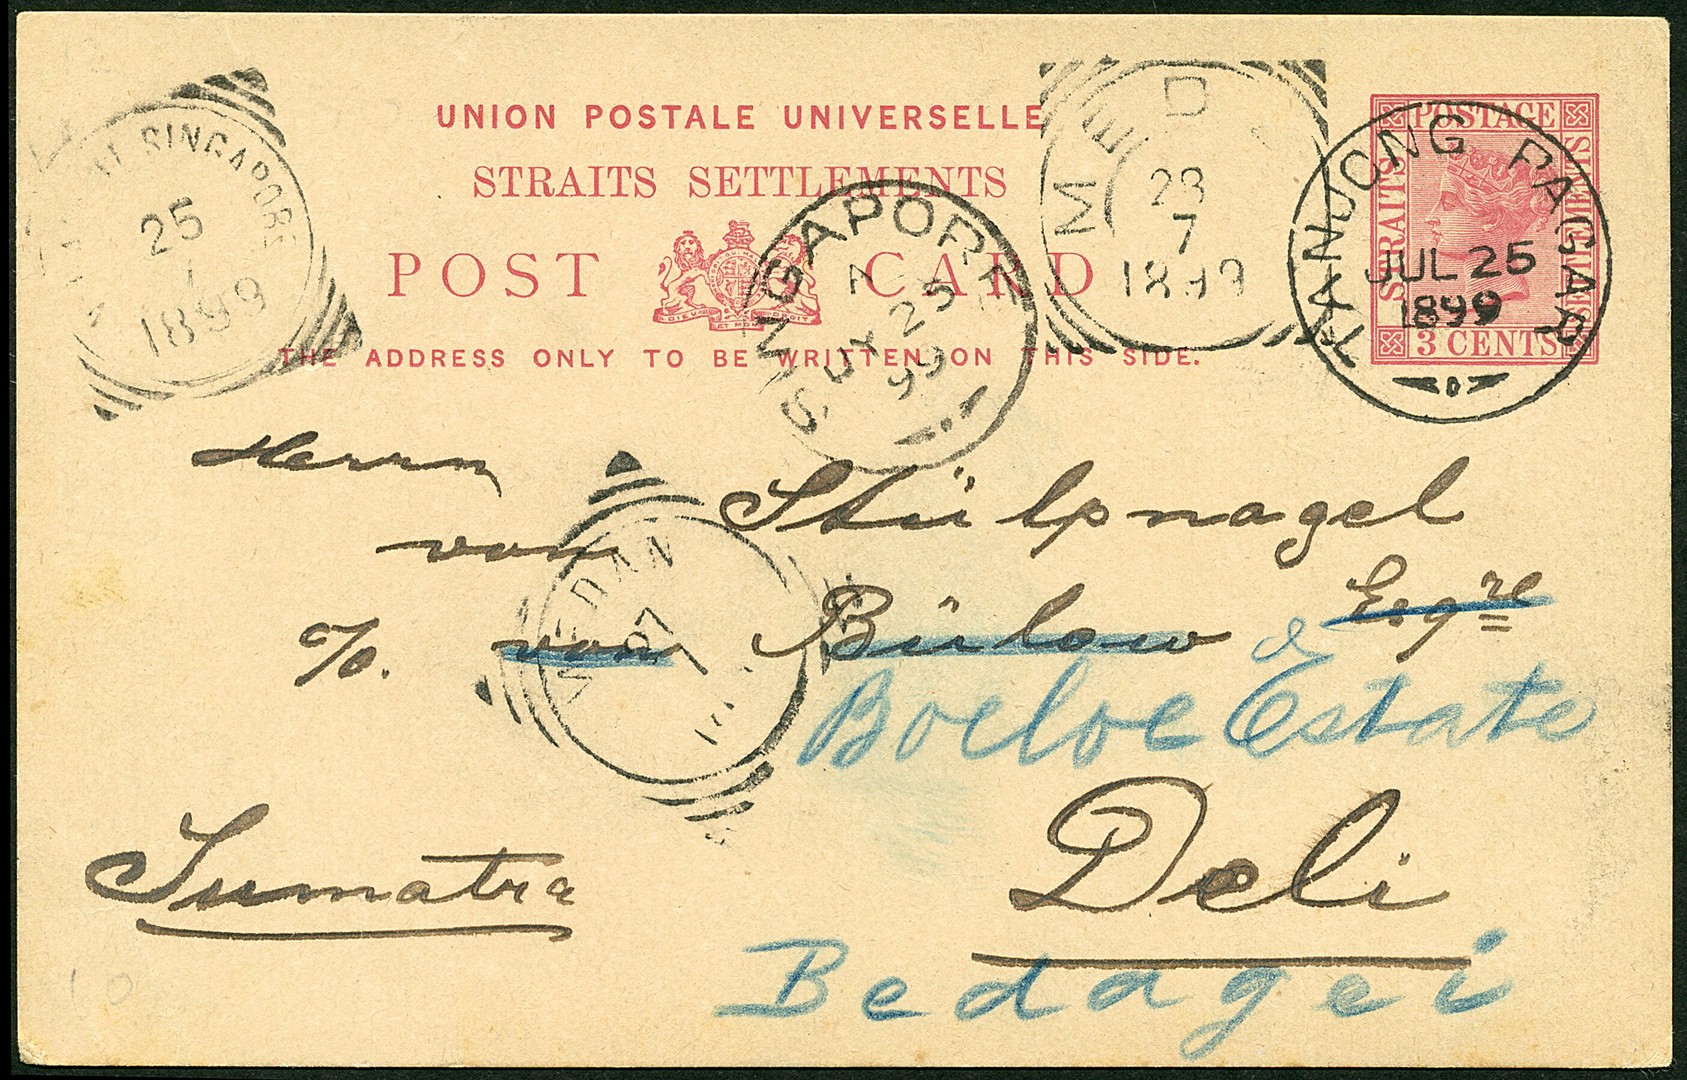 UNION POSTALE UNIVERSELLE
STRAITS SETTLEMENTS
POST CARD
DIEU ET MON DROIT
THE ADDRESS ONLY TO BE WRITTEN ON THIS SIDE.
POSTAGE
STRAITS SETTLEMENTS
3 CENTS
TANJONG PAGAR
JUL 25
1899
D
SINGAPORE
25
1899
SINGAPORE
JY 25
99
MED
23
7
1899
MEDAN
27
7
Herrn
von Stülpnagel
c/o. von Bülow Esqre
& Boeloe Estate
Deli
Sumatra
Bedagei